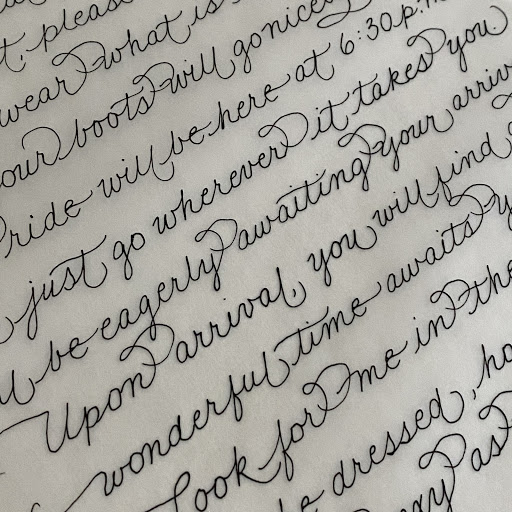 t, please
wear what is
our boots will go nicely
ride will be here at 6:30 p.m.
just go wherever it takes you
ll be eagerly awaiting your arriv
Upon arrival, you will find
wonderful time awaits y
Look for me in the
be dressed, ho
as